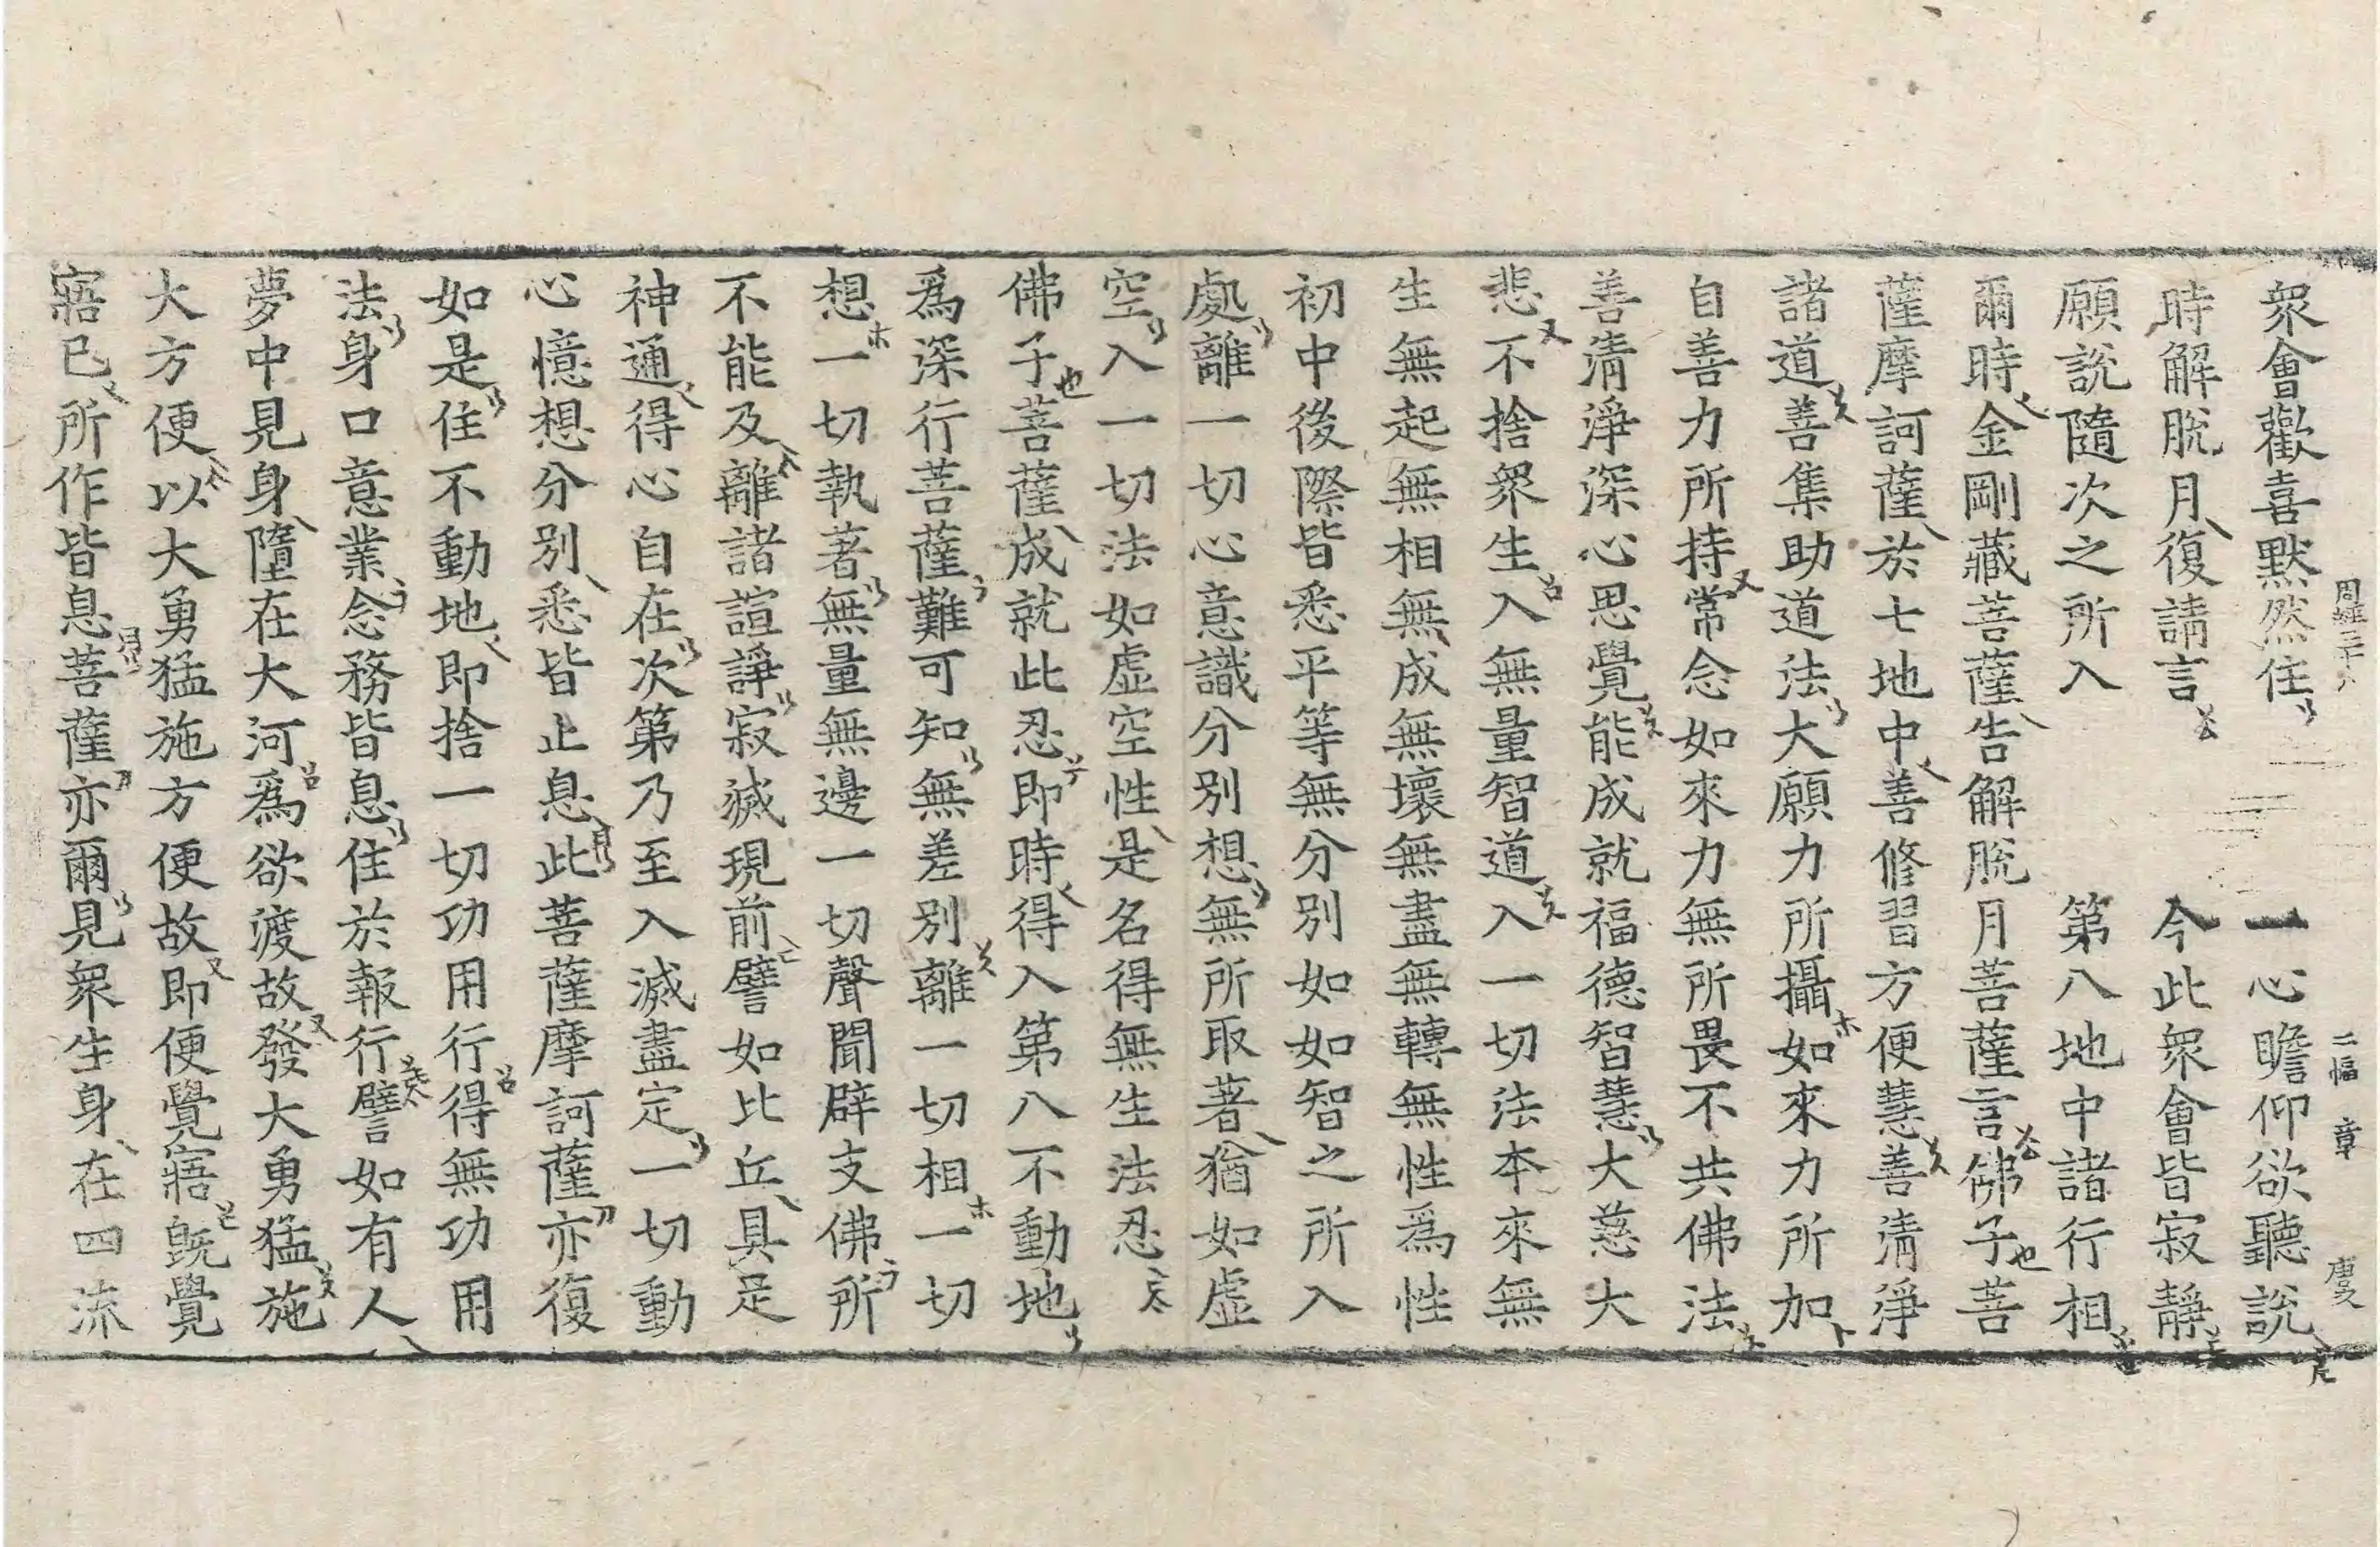 周經三十八 二幅 章 庚
衆會歡喜默然住 一心瞻仰欲聽說
時解脫月復請言 今此衆會皆寂靜
願說隨次之所入 第八地中諸行相
爾時金剛藏菩薩告解脫月菩薩言佛子菩
薩摩訶薩於七地中善修習方便慧善淸淨
諸道善集助道法大願力所攝如來力所加
自善力所持常念如來力無所畏不共佛法
善淸淨深心思覺能成就福德智慧大慈大
悲不捨衆生入無量智道入一切法本來無
生無起無相無成無壞無盡無轉無性爲性
初中後際皆悉平等無分別如如智之所入
處離一切心意識分別想無所取著猶如虛
空入一切法如虛空性是名得無生法忍
佛子菩薩成就此忍即時得入第八不動地
爲深行菩薩難可知無差別離一切相一切
想一切執著無量無邊一切聲聞辟支佛所
不能及離諸諠諍寂滅現前譬如比丘具足
神通得心自在次第乃至入滅盡定一切動
心憶想分別悉皆止息此菩薩摩訶薩亦復
如是住不動地即捨一切功用行得無功用
法身口意業念務皆息住於報行譬如有人
夢中見身墮在大河爲欲渡故發大勇猛施
大方便以大勇猛施方便故即便覺寤旣覺
寤已所作皆息菩薩亦爾見衆生身在四流